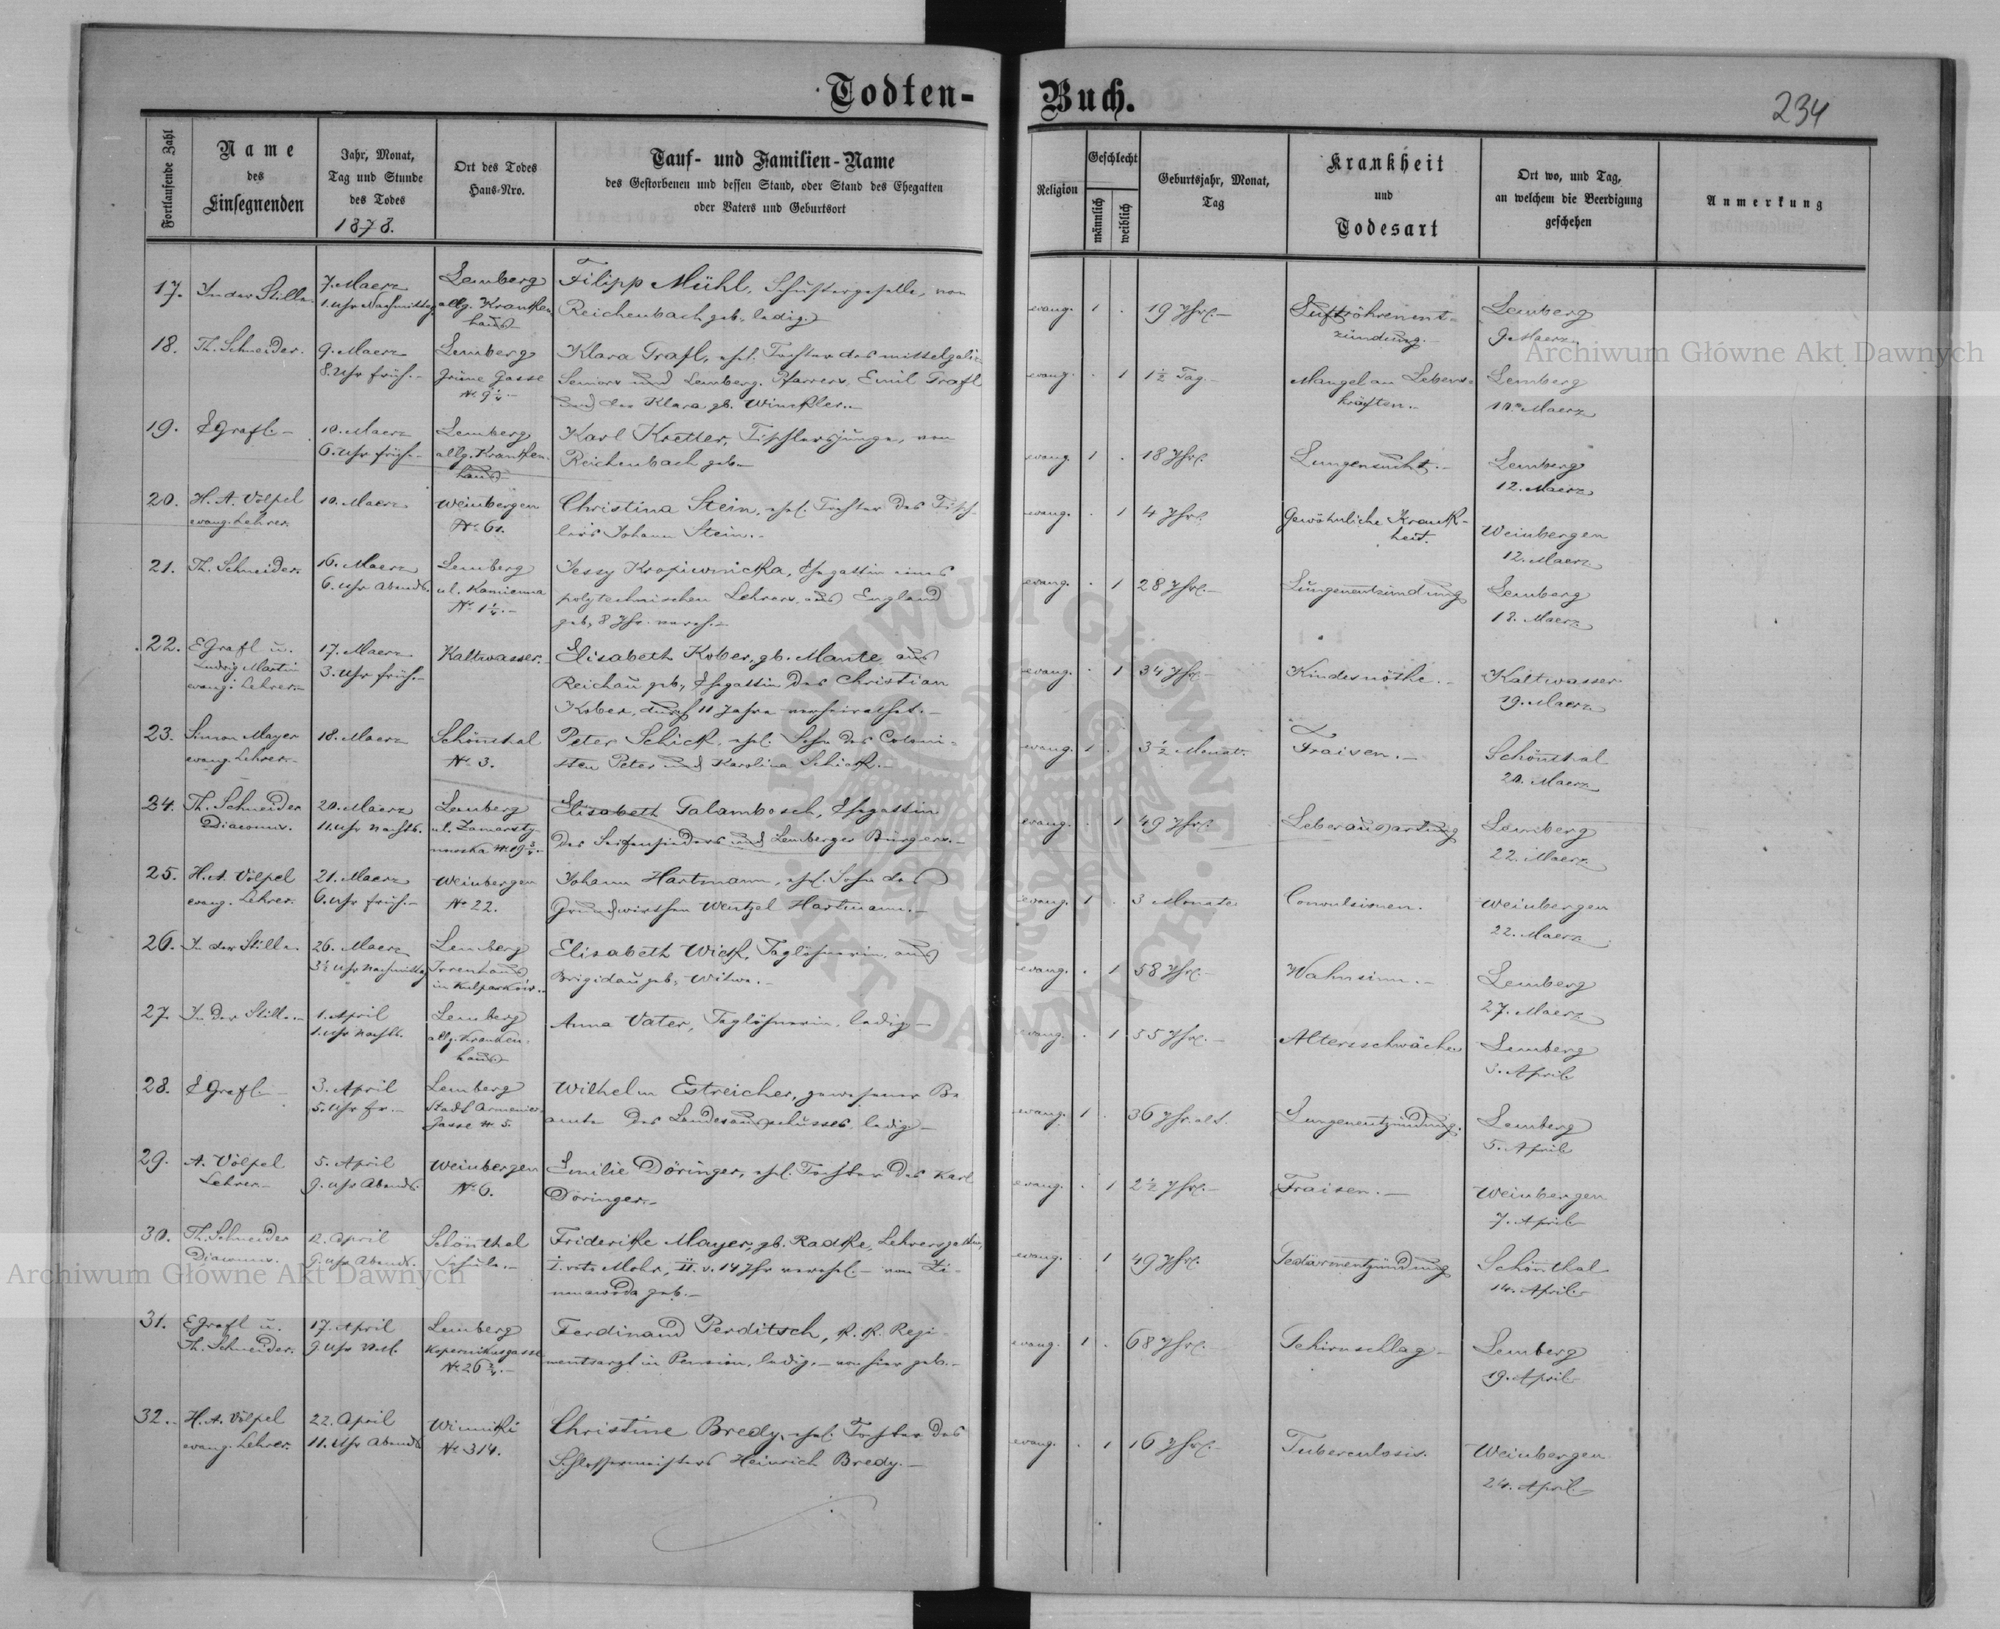 Todten-
Fortlaufende Zahl
Name
des
Einsegnenden
Jahr, Monat,
Tag und Stunde
des Todes
1878.
Ort des Todes
Haus-Nro.
Tauf- und Familien-Name
des Gestorbenen und dessen Stand, oder Stand des Ehegatten
oder Vaters und Geburtsort
17. In der Stille 7. Maerz Lemberg Filipp Mühl, Schustergeselle, von
1. Uhr Nachmittag allg. Kranken Reichenbach geb. ledig.
haus
18. Th. Schneider. 9. Maerz Lemberg Klara Grafl, ehel. Tochter des mittelgaliz.
8. Uhr früh. Grüne Gasse Seniors und Lemberg. Pfarrers, Emil Grafl
und der Klara gb. Winckler.
19. E Grafl. 10. Maerz Lemberg Karl Kretter, Tischlersjunge, von
6. Uhr früh. allg. Kranken Reichenbach geb.
haus
20. H. A. Völpel 10. Maerz Weinbergen Christina Stein, ehel. Tochter des Tisch-
evang. Lehrer. No. 61. lers Johann Stein.
21. Th. Schneider. 16. Maerz Lemberg Jessy Kropiwnicka, Ehegattin eines
6. Uhr Abends. ul. Kamienna polytechnischen Lehrers, aus England
geb, 8 Jhr. vereh.
22. E Grafl u. 17. Maerz Kaltwasser. Elisabeth Kober, gb. Mante, aus
Ludwig Martin 3. Uhr früh. Reichau geb, Ehegattin des Christian
evang. Lehrer Kober, durch 11 Jahre verheirathet.
23. Simon Mayer 18. Maerz Schönthal Peter Schick, ehel. Sohn des Coloni-
evang. Lehrer No. 3. sten Peter und Karolina Schick.
24. Th. Schneider 20. Maerz Lemberg Elisabeth Galambosch, Ehegattin
Diaconus. 11. Uhr Nachts. ul. Zamarsty- des Seifensieders und Lemberger Bürgers.
25. H. A. Völpel 21. Maerz Weinbergen Johann Hartmann, ehel. Sohn des
evang. Lehrer. 6. Uhr früh. No 22. Grundwirthen Wentzel Hartmann.
26. In der Stille 26. Maerz Lemberg Elisabeth Wick, Taglöhnerin, aus
3½ Uhr Nachmittag Irrenhaus Brigidau geb, Witwe.
in Kulparkow.
27. In der Stille 1. April Lemberg Anna Vater, Taglöhnerin, ledig
1. Uhr Nachts. allg. Kranken-
haus
28. E Grafl. 3. April Lemberg Wilhelm Estreicher, gewesener Be
5. Uhr fr. Stadt Armenier- amte des Landesausschusses, ledig
Gasse N 5.
29. A. Völpel 5. April Weinbergen Emilie Döringer, ehel. Tochter des Karl
Lehrer 9. Uhr Abends. No 6. Döringer.
30. Th. Schneider 12. April Schönthal Friderike Mayer, gb. Radke, Lehrersgattin,
Diaconus. 9. Uhr Abends. Schule. I. voto Mohr, II. v. 14 Jhr verehel. von Zi-
nnawoda geb.
31. E Grafl u. 17. April Lemberg Ferdinand Perditsch, k. k. Regi-
Th. Schneider. 9. Uhr Kopernikusgasse mentsarzt in Pension, ledig, von hier geb.
32. H. A. Völpel 22. April Winniki Christine Bredy, ehel. Tochter des
evang. Lehrer. 11. Uhr Abends No 314. Schlossermeisters Heinrich Bredy.
Buch.
234
Religion
Geschlecht
männlich
weiblich
Geburtsjahr, Monat,
Tag
Krankheit
und
Todesart
Ort wo, und Tag,
an welchem die Beerdigung
geschehen
Anmerkung
evang. 1 . 19 Jhr. Luftröhrenent- Lemberg
zündung. 9. Maerz
evang. . 1 1½ Tag. Mangel an Lebens- Lemberg
kräften. 10. Maerz
evang. 1 . 18 Jhr. Lungensucht. Lemberg
12. Maerz
evang. . 1 4 Jhr. Gewöhnliche Krank- Weinbergen
heit. 12. Maerz
evang. . 1 28 Jhr. Lungenentzündung Lemberg
18. Maerz
evang. . 1 34 Jhr. Kindesnöthe. Kaltwasser
19. Maerz
evang. 1 . 3½ Monat. Fraisen. Schönthal
20. Maerz
evang. . 1 49 Jhr. Leberausartung Lemberg
22. Maerz
evang. 1 . 3 Monate Convulsionen. Weinbergen
22. Maerz
evang. . 1 58 Jhr. Wahnsinn. Lemberg
27. Maerz
evang. . 1 55 Jhr. Altersschwäche Lemberg
3. April
evang. 1 . 36 Jhr. alt. Lungenentzündung. Lemberg
5. April
evang. . 1 2½ Jhr. Fraisen. Weinbergen
7. April
evang. . 1 49 Jhr. Gedärmentzündung Schönthal
14. April
evang. 1 . 68 Jhr. Gehirnschlag Lemberg
19. April
evang. . 1 16 Jhr. Tuberculosis. Weinbergen
24. April
Archiwum Główne Akt Dawnych
Archiwum Główne Akt Dawnych
ARCHIWUM GŁÓWNE AKT DAWNYCH